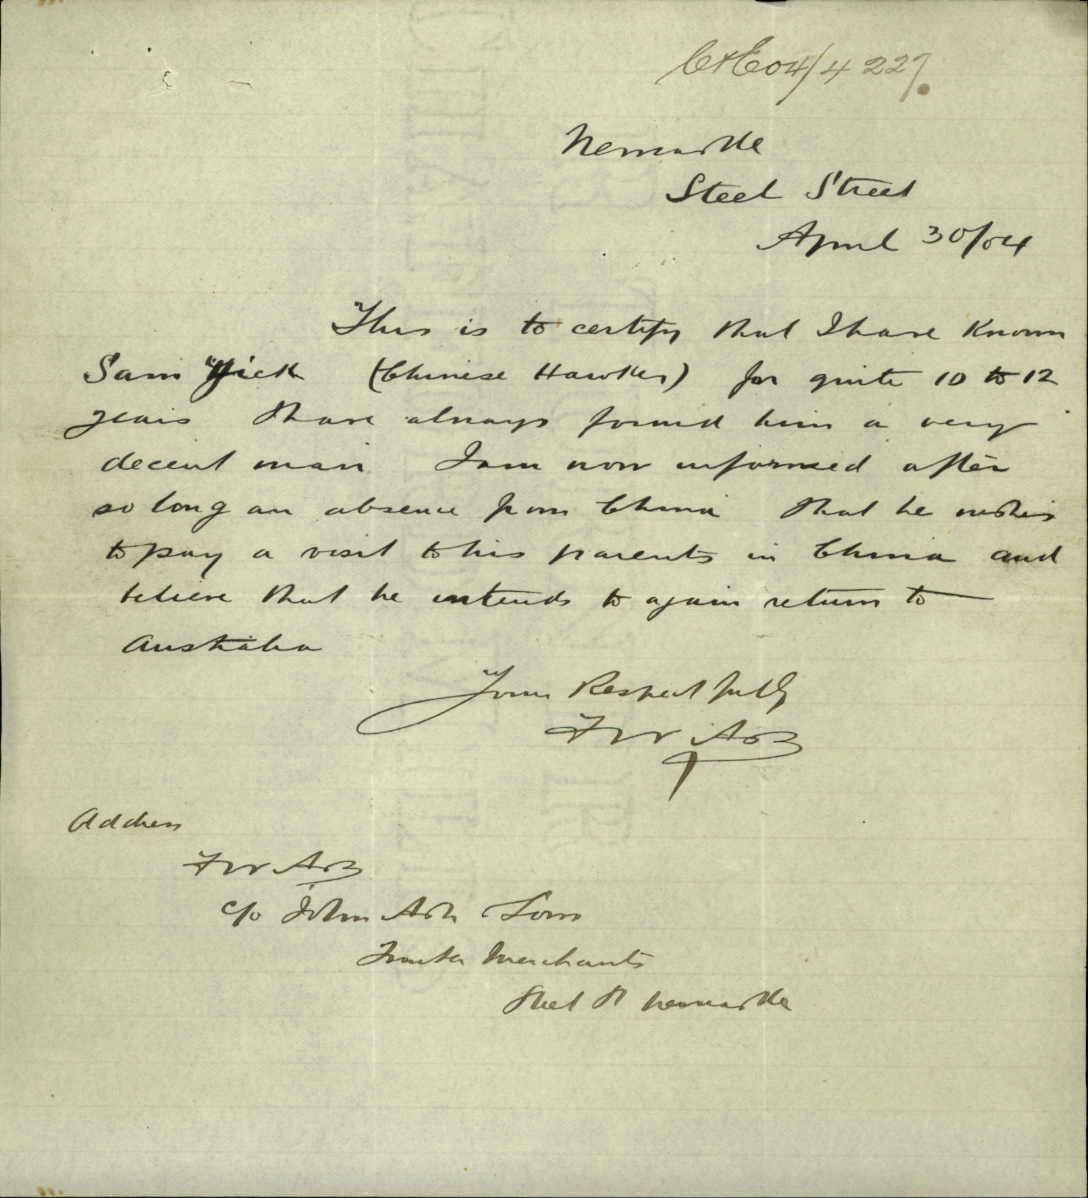 C&E04/4227.
Newcastle
Steel Street
April 30/04
This is to certify that I have Known
Sam Yick (Chinese Hawker) for quite 10 to 12
years I have always found him a very
decent man I am now informed after
so long an absence from China that he wishes
to pay a visit to his parents in China and
believe that he intends to again return to
Australia
Yours Respectfully
F W Ash
Address
F W Ash
c/o John Ash Sons
Timber Merchants
Steel St Newcastle